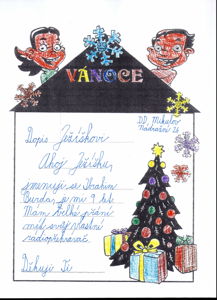 VÁNOCE
DD Mikulov
Nádražní 26
Dopis Ježíškovi
Ahoj Ježíšku,
jmenuji se Ibrahim
Burda, je mi 9 let.
Mám velké přání
mít svůj vlastní
radiopřehrávač.
Děkuji Ti